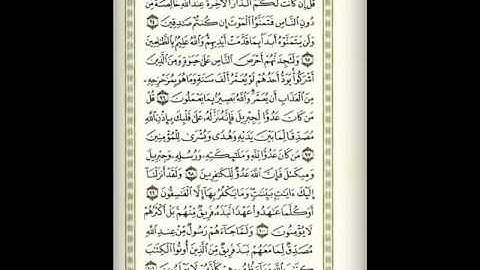 قُلْ إِن كَانَتْ لَكُمُ الدَّارُ الْآخِرَةُ عِندَ اللَّهِ خَالِصَةً مِّن
دُونِ النَّاسِ فَتَمَنَّوُا الْمَوْتَ إِن كُنتُمْ صَادِقِينَ ٩٤
وَلَن يَتَمَنَّوْهُ أَبَدًا بِمَا قَدَّمَتْ أَيْدِيهِمْ وَاللَّهُ عَلِيمٌ بِالظَّالِمِينَ
٩٥ وَلَتَجِدَنَّهُمْ أَحْرَصَ النَّاسِ عَلَىٰ حَيَوٰةٍ وَمِنَ الَّذِينَ
أَشْرَكُوا يَوَدُّ أَحَدُهُمْ لَوْ يُعَمَّرُ أَلْفَ سَنَةٍ وَمَا هُوَ بِمُزَحْزِحِهِ
مِنَ الْعَذَابِ أَن يُعَمَّرَ وَاللَّهُ بَصِيرٌ بِمَا يَعْمَلُونَ ٩٦ قُلْ
مَن كَانَ عَدُوًّا لِّجِبْرِيلَ فَإِنَّهُ نَزَّلَهُ عَلَىٰ قَلْبِكَ بِإِذْنِ اللَّهِ
مُصَدِّقًا لِّمَا بَيْنَ يَدَيْهِ وَهُدًى وَبُشْرَىٰ لِلْمُؤْمِنِينَ
٩٧ مَن كَانَ عَدُوًّا لِّلَّهِ وَمَلَٰئِكَتِهِ وَرُسُلِهِ وَجِبْرِيلَ
وَمِيكَىٰلَ فَإِنَّ اللَّهَ عَدُوٌّ لِّلْكَافِرِينَ ٩٨ وَلَقَدْ أَنزَلْنَا
إِلَيْكَ ءَايَٰتٍ بَيِّنَٰتٍ وَمَا يَكْفُرُ بِهَا إِلَّا الْفَاسِقُونَ ٩٩
أَوَكُلَّمَا عَٰهَدُوا عَهْدًا نَّبَذَهُ فَرِيقٌ مِّنْهُم بَلْ أَكْثَرُهُمْ
لَا يُؤْمِنُونَ ١٠٠ وَلَمَّا جَاءَهُمْ رَسُولٌ مِّنْ عِندِ اللَّهِ
مُصَدِّقٌ لِّمَا مَعَهُمْ نَبَذَ فَرِيقٌ مِّنَ الَّذِينَ أُوتُوا الْكِتَٰبَ
كِتَٰبَ اللَّهِ وَرَاءَ ظُهُورِهِمْ كَأَنَّهُمْ لَا يَعْلَمُونَ ١٠١